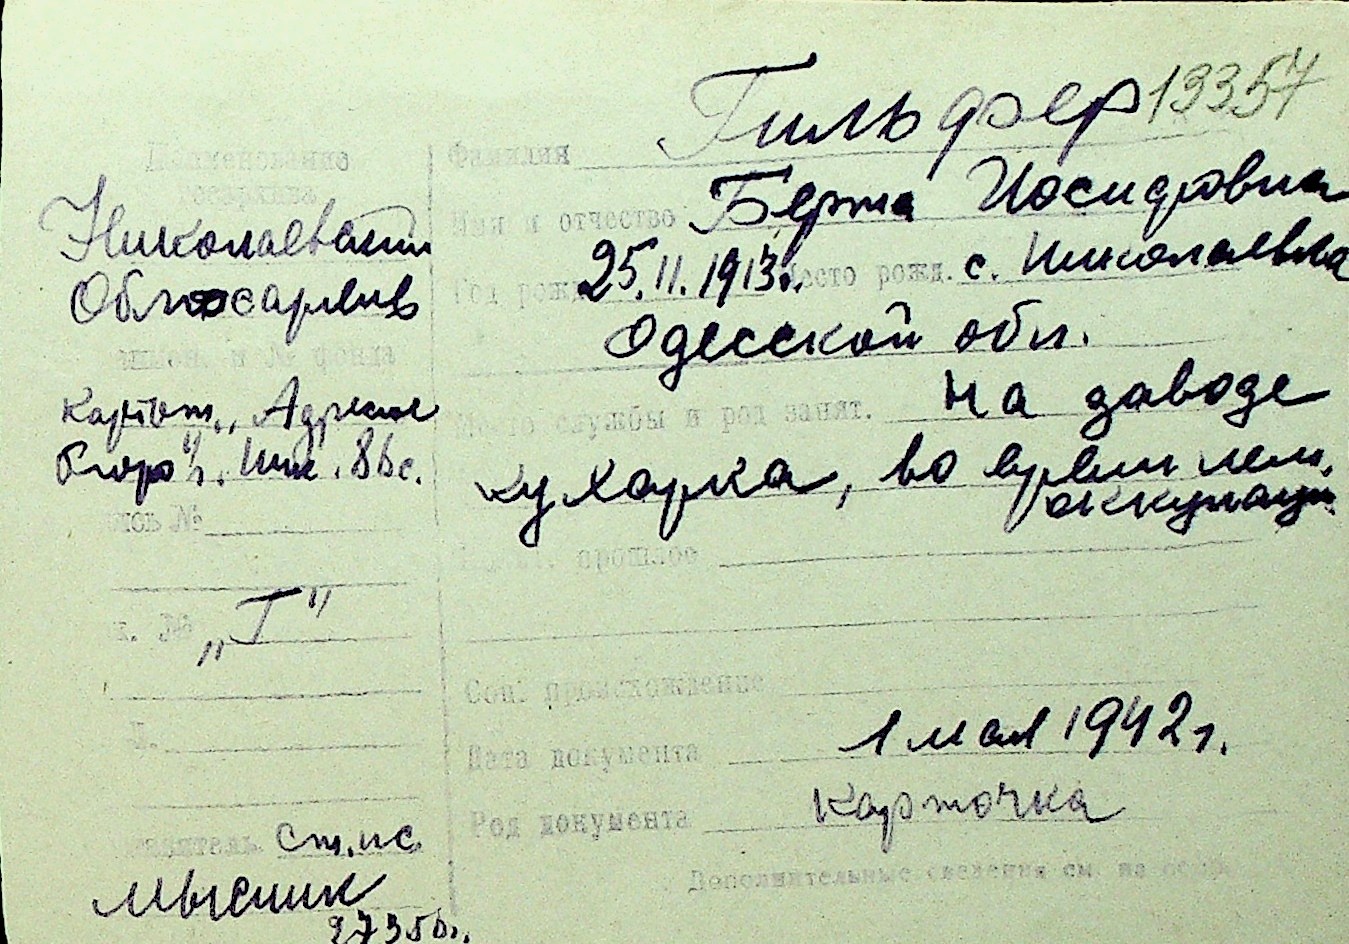 Гильфер 13357
Наименование
госархива
Николаевский
Облгосархив
наимен. и № фонда
Картот. „Адресное
бюро" г. Ник. 86 с.
опись №
„Г"
ст. ис.
Мысник
Фамилия
Имя и отчество Берта Иосифовна
Год рожд. 25.11.1913г. Место рожд. с. Николаевка
Одесской обл.
Место службы и род занят. На заводе
кухарка, во время нем.
оккупации
прошлое
Соц. происхождение
Дата документа 1 мая 1942 г.
Род документа Карточка
Дополнительные сведения см. на обор.